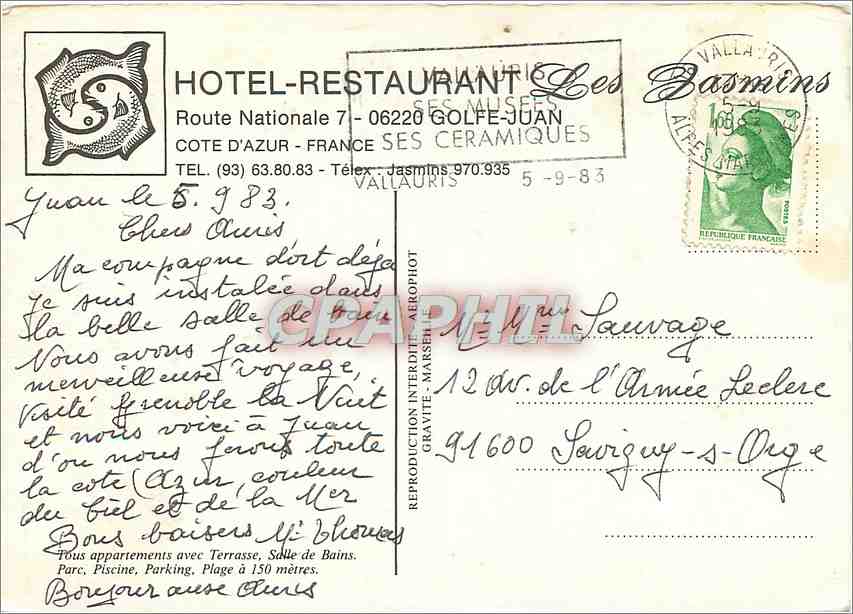 HOTEL-RESTAURANT Les Jasmins
Route Nationale 7 - 06220 GOLFE-JUAN
COTE D'AZUR - FRANCE
TEL. (93) 63.80.83 - Télex : Jasmins 970.935
VALLAURIS
SES MUSEES
SES CERAMIQUES
VALLAURIS 5-9-83
VALLAURIS
5-9
1983
ALPES MAR
1,60
POSTES
REPUBLIQUE FRANÇAISE
Juan le 5.9 83.
Chers Amis
Ma compagne dort déja
Je suis instalée dans
la belle salle de bain
Nous avons fait un
merveilleuse voyage,
visité Grenoble la Nuit
et nous voici à Juan
d'ou nous ferons toute
la cote (Azur, couleur
du Ciel et de la Mer
Bons baisers Mi Thomas
Tous appartements avec Terrasse, Salle de Bains.
Parc, Piscine, Parking, Plage à 150 mètres.
Bonjour aux Amis
REPRODUCTION INTERDITE - AEROPHOT
GRAVITE - MARSEILLE
CPAPHIL
Sauvage
12 Av. de l'Armée Leclerc
91600 Savigny-s-Orge